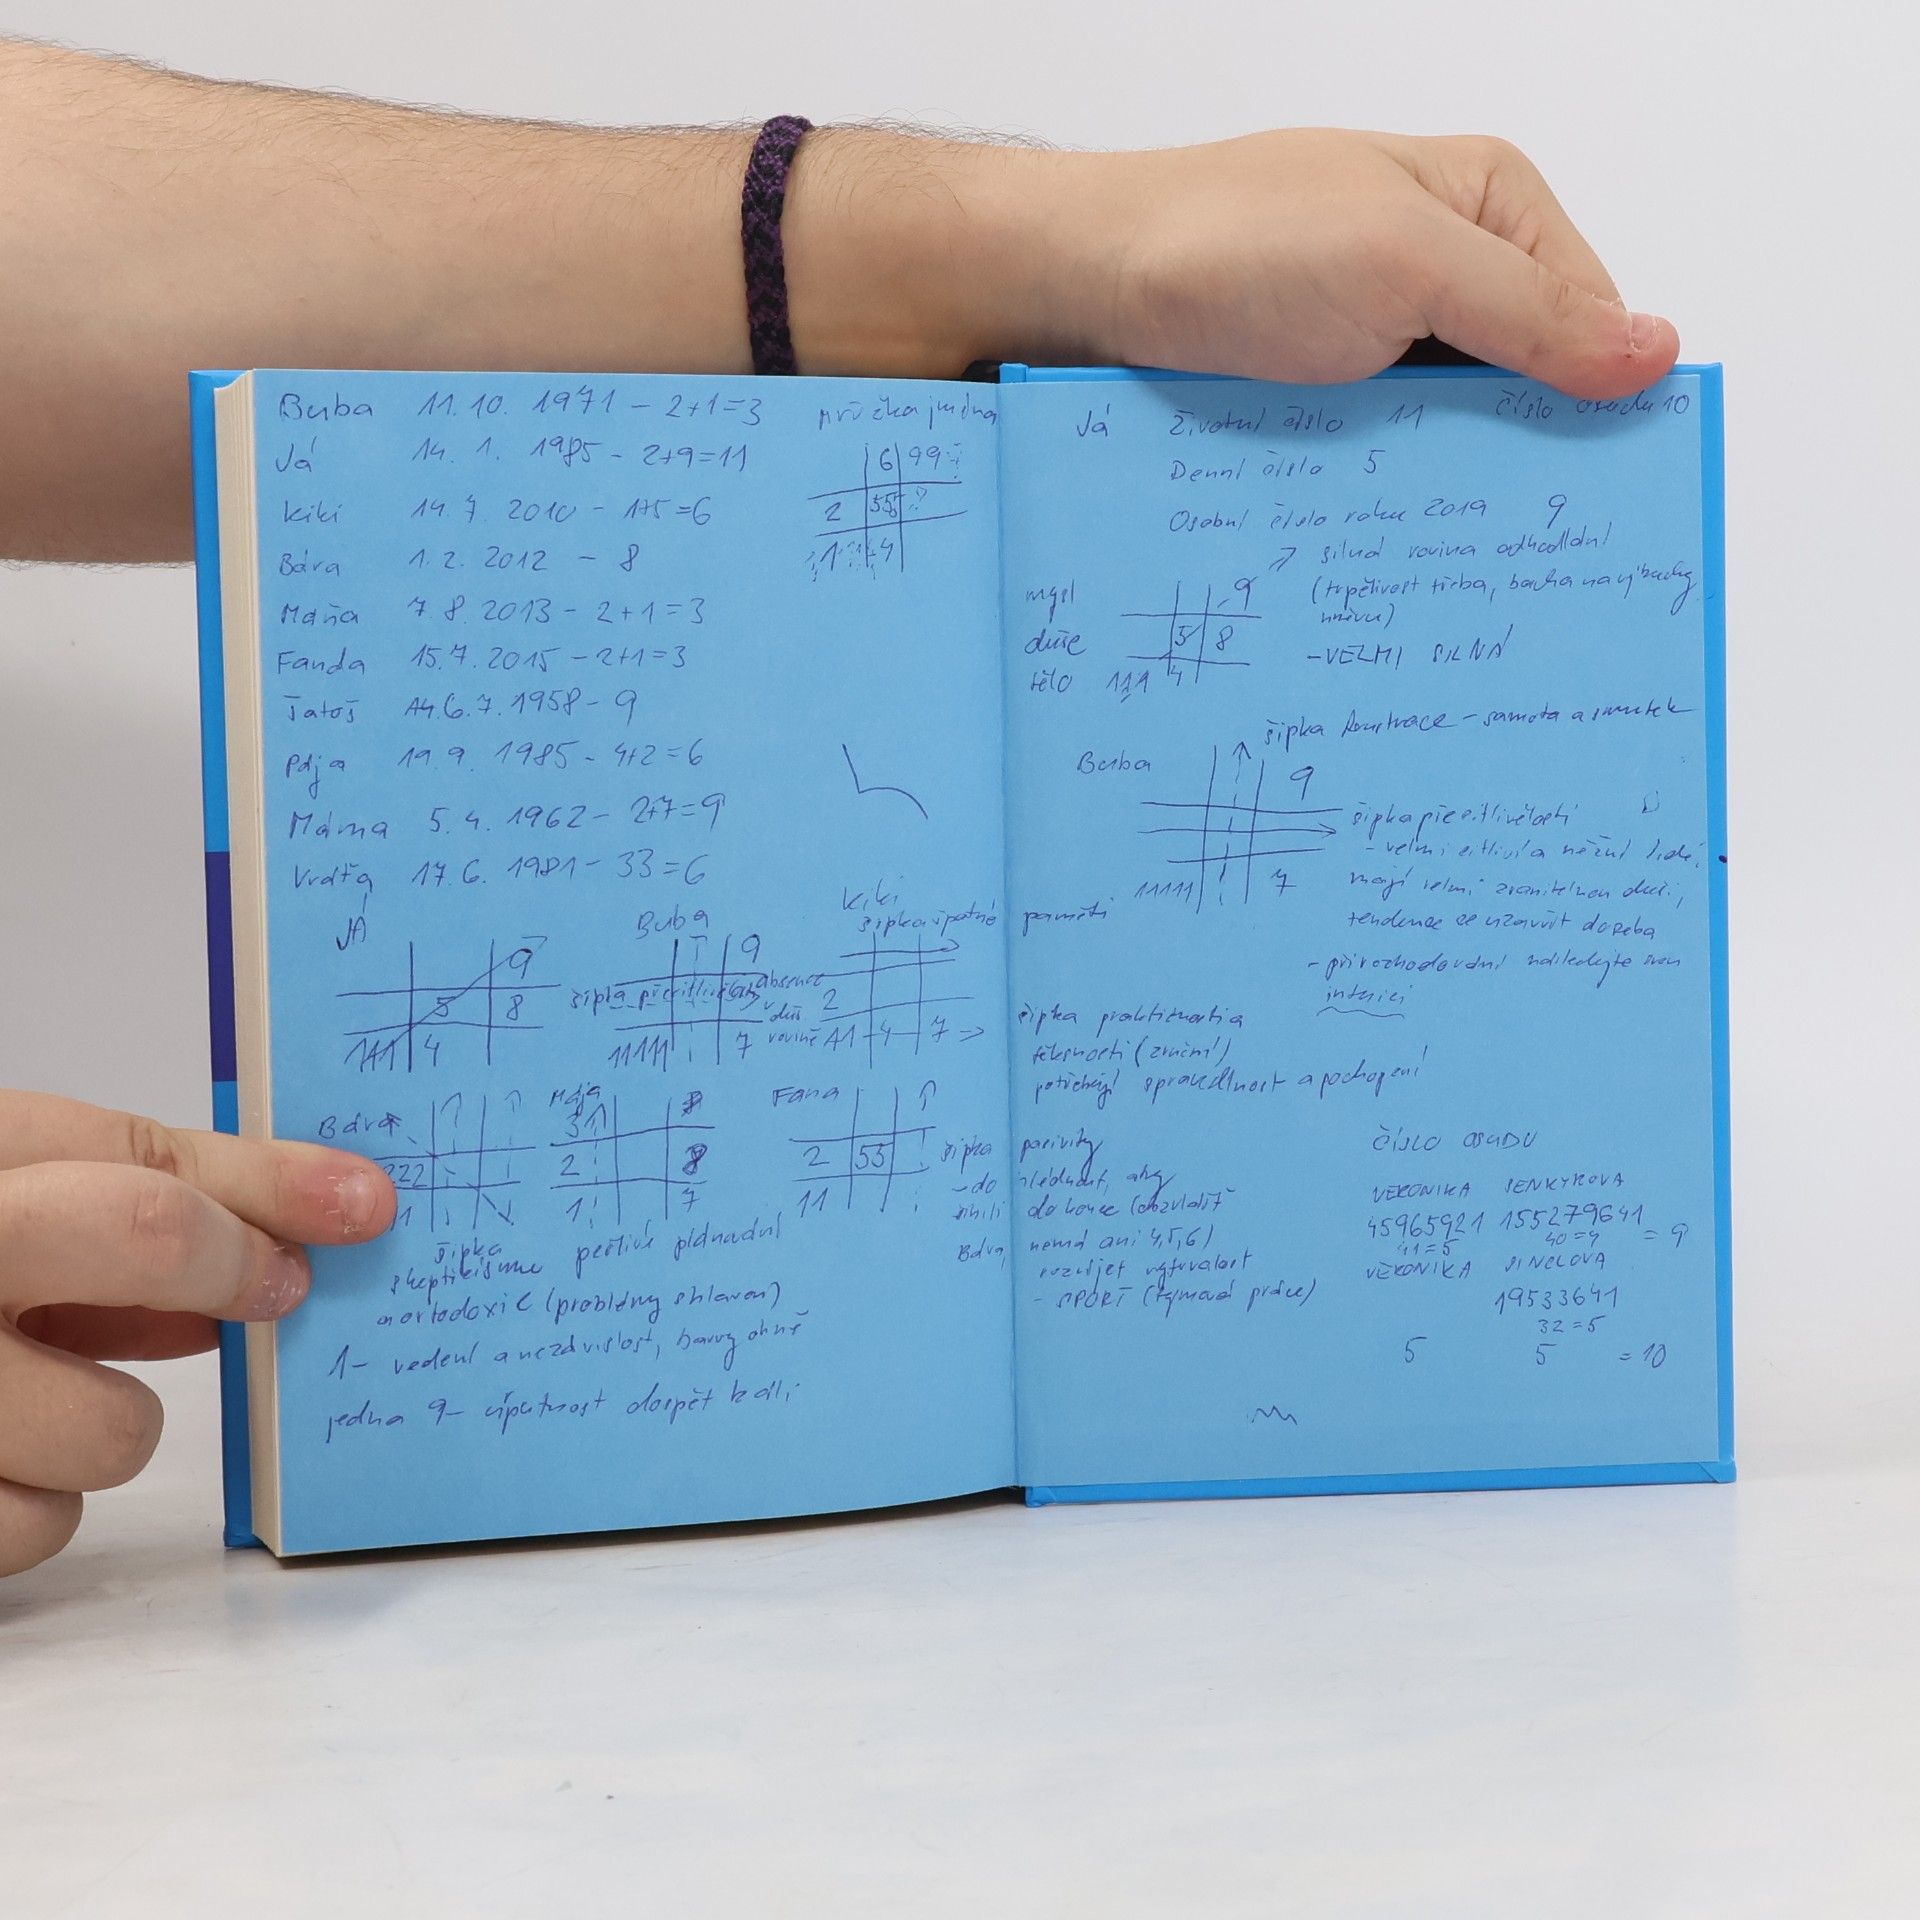 Buba 11.10. 1971 - 2+1=3
Já 14. 1. 1985 - 2+9=11
Kiki 14.7. 2010 - 1+5=6
Bára 1.2. 2012 - 8
Máňa 7.8. 2013 - 2+1=3
Fanda 15.7. 2015 - 2+1=3
6.7. 1958 - 9
Pája 19.9. 1985 - 4+2=6
Máma 5.4. 1962 - 2+7=9
17.6. 1981 - 33=6
Mřížka jména
6 99
2 555 ?
1 4
JÁ
9
5 8
111 4
Buba
9
šipka přecitlivělosti absence
duš.
rovině
11111 7
Kiki
šipka špatné paměti
2
11 4 7 =>
šipka praktičnosti a
těksnosti (zruční)
potřebují spravedlnost a pochopení
Bára
222
1
šipka
skepticismu
Mája
31
2 8
1 7
pečlivé plánování
Fana
2 55
11
šipka pasivity
- do
do konce (obzvlášť
Bára nemá ani 4,5,6)
rozvíjet vytrvalost
- SPORT (týmová práce)
a ortodoxie (problémy s hlavou)
1- vedení a nezávislost, barvy ohně
jedna 9- dospět k cíli
Já Životní číslo 11 číslo osudu 10
Denní číslo 5
Osobní číslo roku 2019 9
silná rovina odhodlání
(trpělivost třeba, bacha na výbuchy
hněvu)
- VELMI SILNÁ
mysl 9
duše 5 8
tělo 111 4
šipka frustrace - samota a smutek
Buba
9
11111 7
šipka přecitlivělosti
- velmi citliví a něžní lidé,
mají velmi zranitelnou duši,
tendence se uzavřít do sebe
- při rozhodování následujte svou
intuici
ČÍSLO OSUDU
VERONIKA SENKYROVA
45965921 155279641 = 9
41=5 40=4
VERONIKA SINCLOVA
19533641
32=5
5 5 = 10